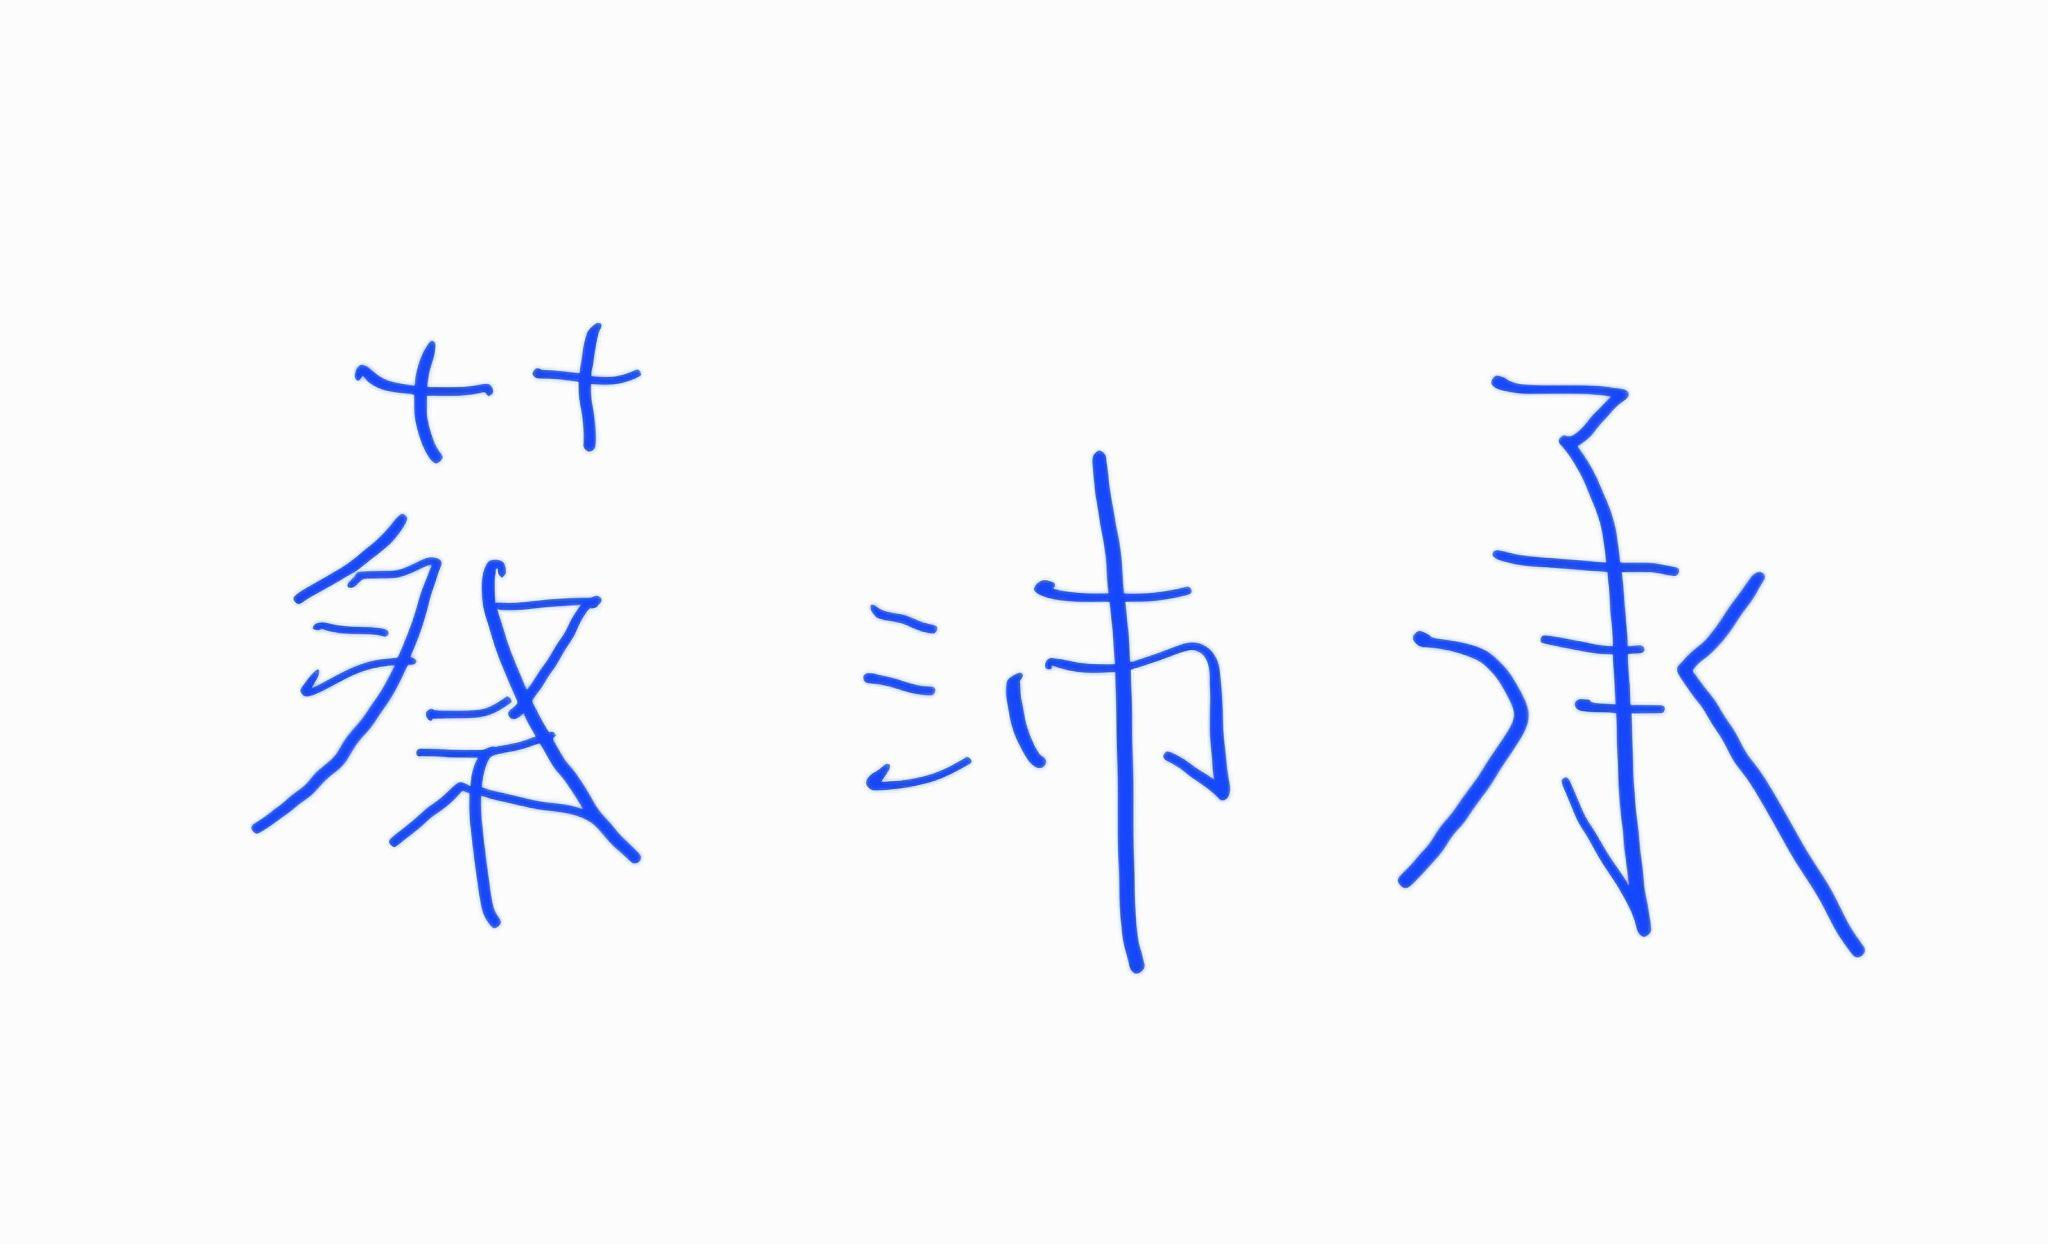 蔡沛承